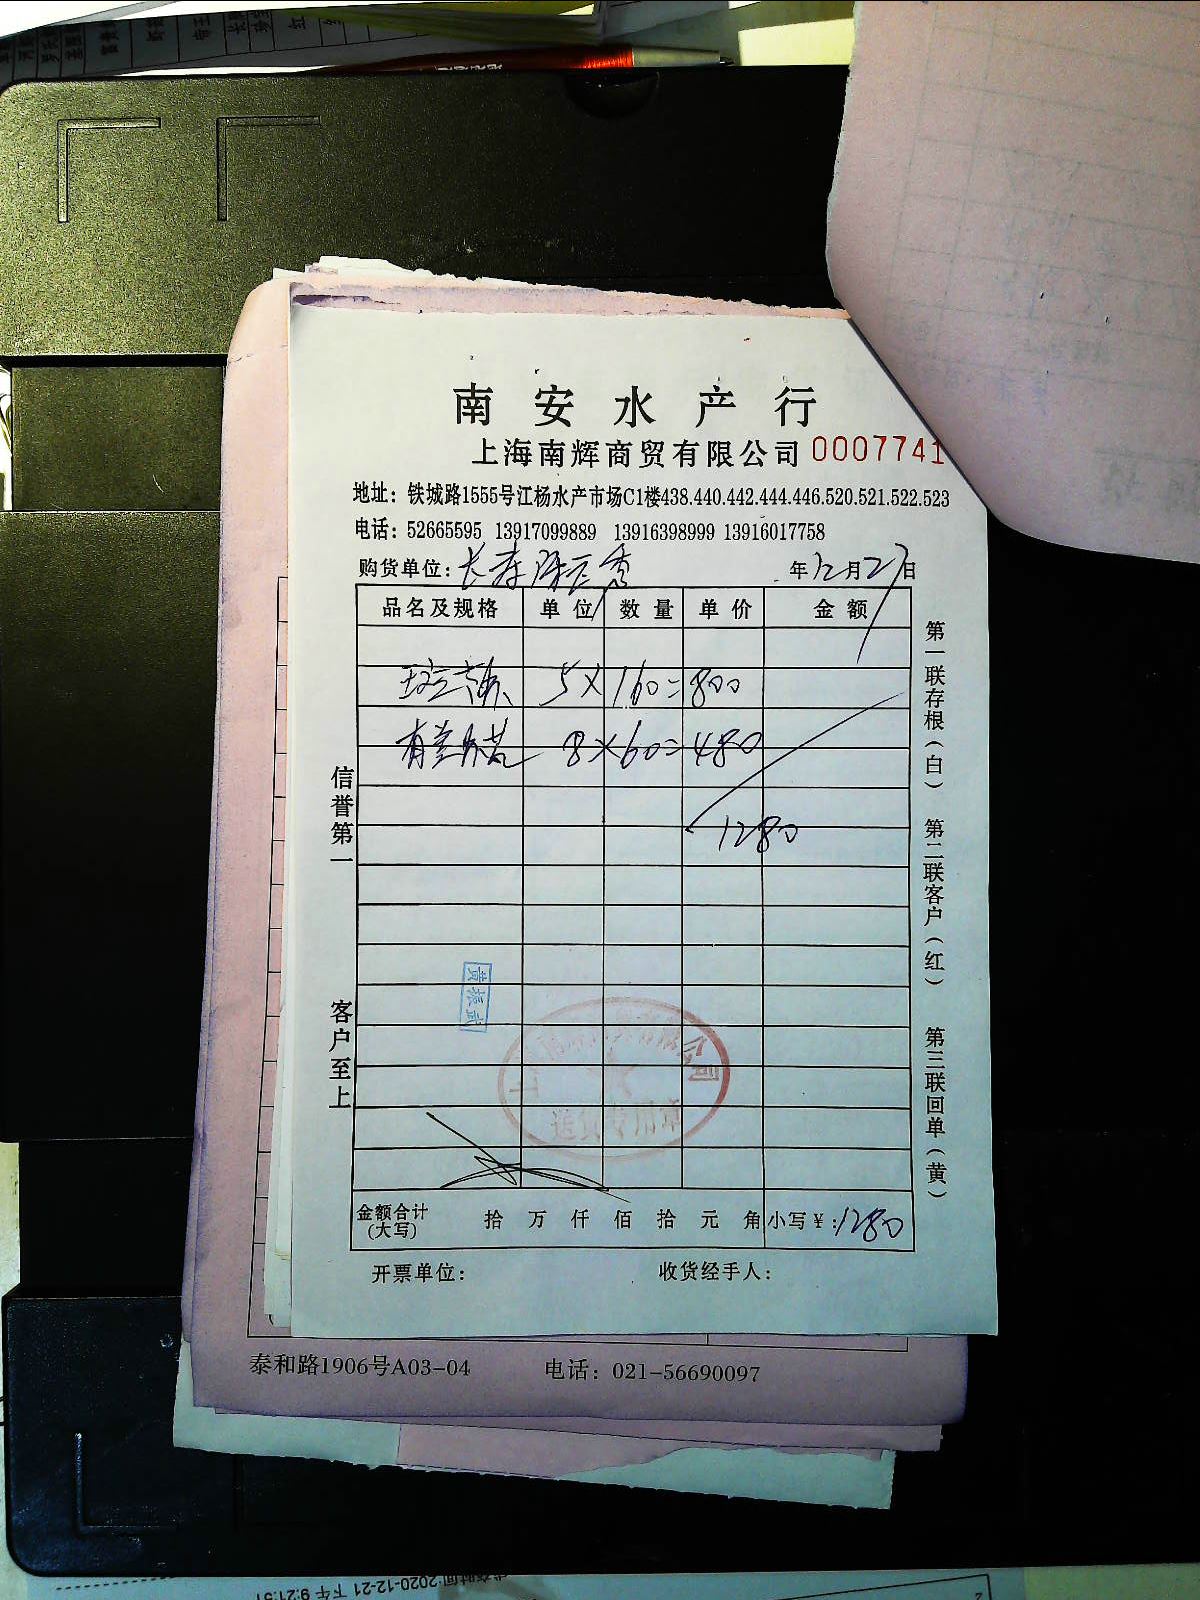 南安水产行
上海南辉商贸有限公司 0007741
地址：铁城路1555号江杨水产市场C1楼438.440.442.444.446.520.521.522.523
电话：52665595 13917099889 13916398999 13916017758
购货单位：长寿 年12月27日
品名及规格 单位 数量 单价 金额
5×160=800
8×60=480
1280
信誉第一
客户至上
第一联存根（白） 第二联客户（红） 第三联回单（黄）
黄振武
有限公司
送货专用章
金额合计（大写） 拾 万 仟 佰 拾 元 角 小写￥：1280
开票单位： 收货经手人：
泰和路1906号A03-04 电话：021-56690097
2020-12-21 下午 9:21:51